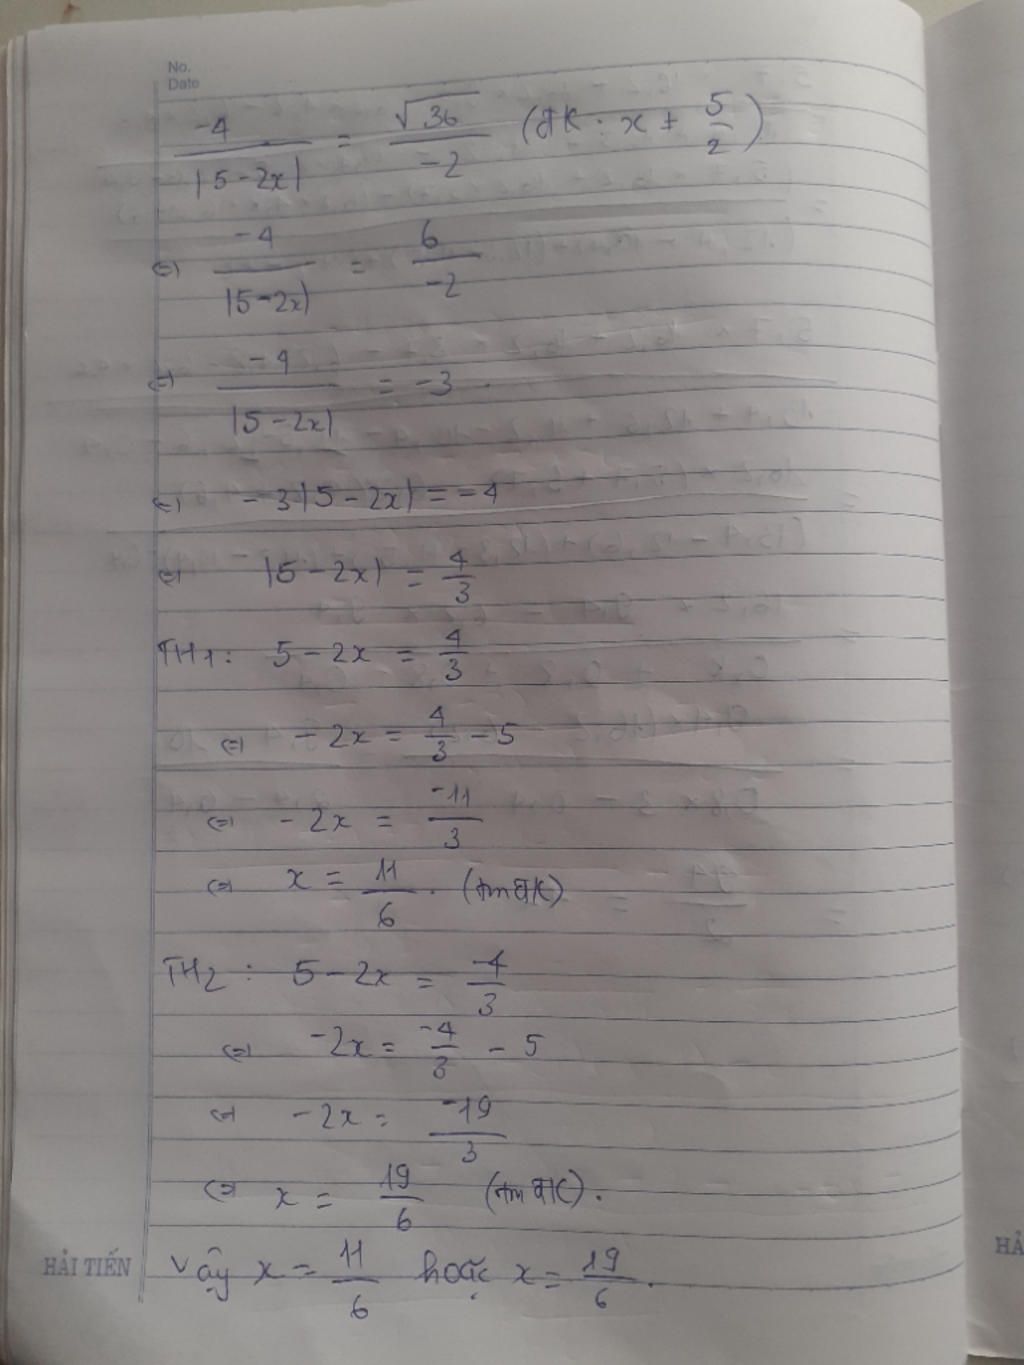 No.
Date
-4/|5-2x| = √36/-2 (ĐK: x ≠ 5/2)
⇔ -4/|5-2x| = 6/-2
⇔ -4/|5-2x| = -3.
⇔ -3|5-2x| = -4
⇔ |5-2x| = 4/3
TH1: 5-2x = 4/3
⇔ -2x = 4/3 - 5
⇔ -2x = -11/3
⇔ x = 11/6. (tmĐK)
TH2: 5-2x = -4/3
⇔ -2x = -4/3 - 5
⇔ -2x = -19/3
⇔ x = 19/6 (tmĐK).
Vậy x = 11/6 hoặc x = 19/6.
HẢI TIẾN
HẢ